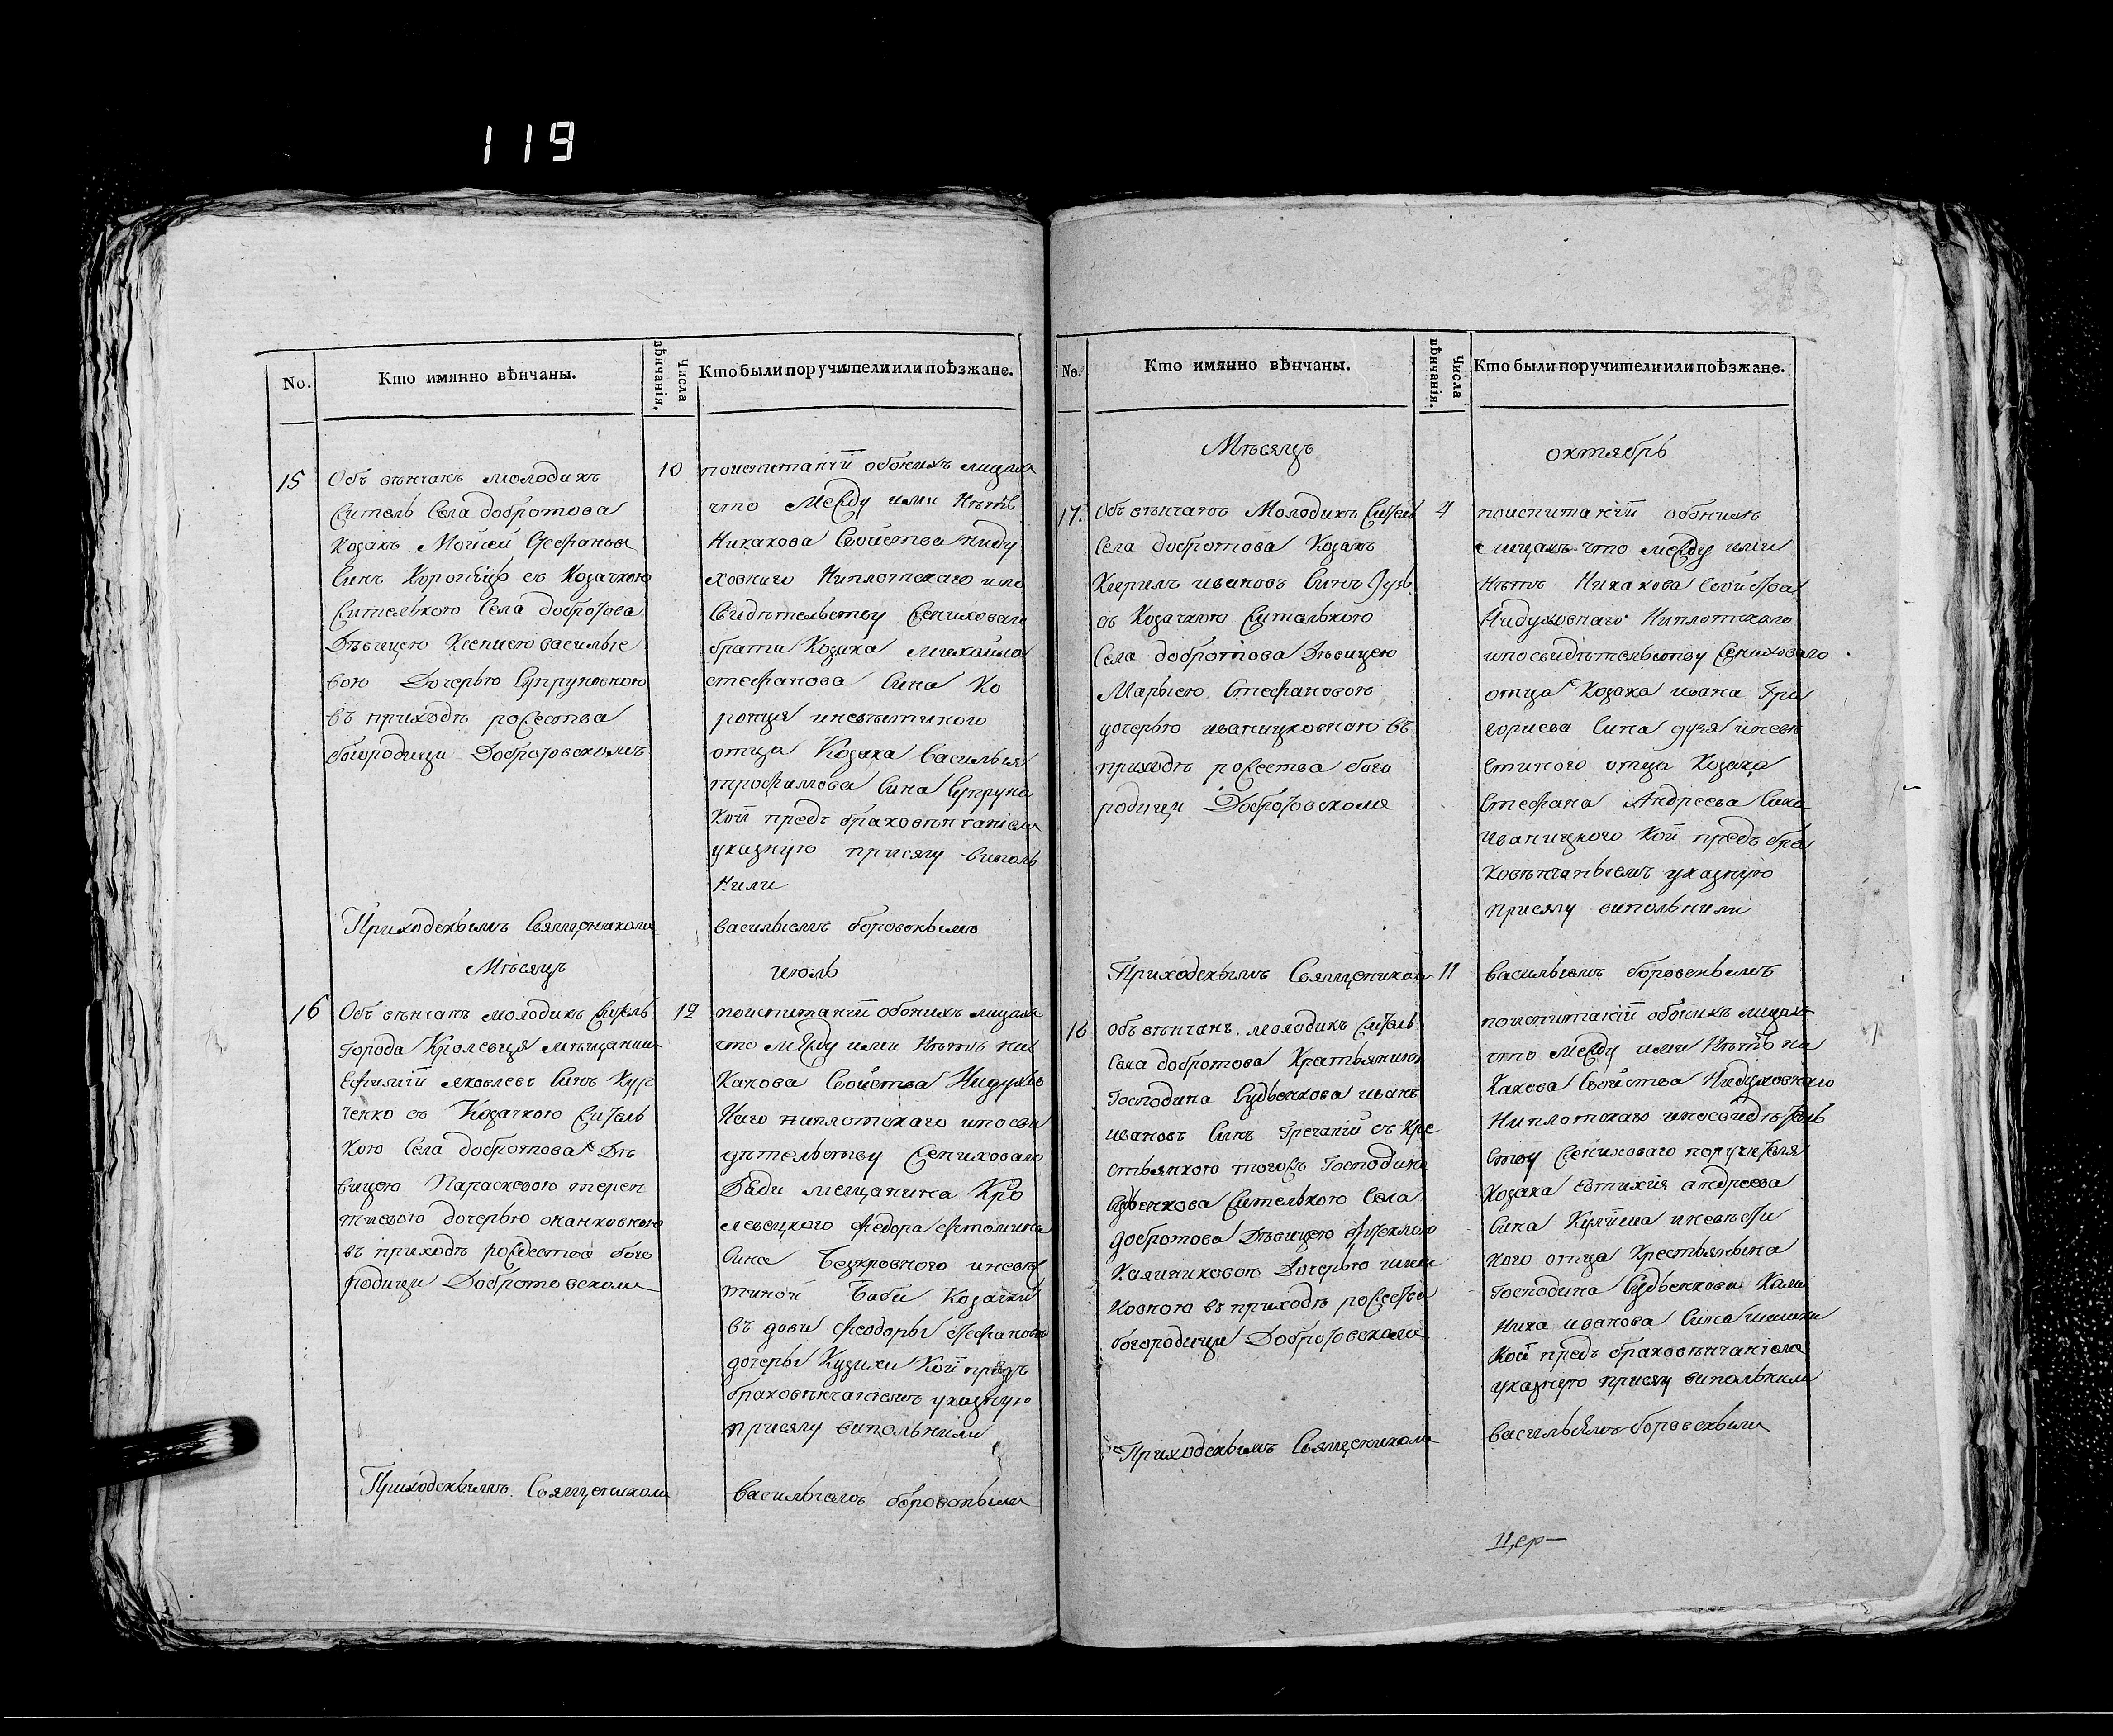 119
No.
Кто имянно вѣнчаны.
Числа вѣнчанія.
Кто были поручители или поѣзжане.
15
Объ вѣнчанъ молодикъ
житель села добротова
козакъ Моисей Стефановъ
синъ Коротецъ съ козачкою
жителькою села добротова
Дѣвицею Ксениею василье
вою Дочерью Супруновною
въ приходѣ рожества
богородици Добротовскомъ
10
поиспитаніи обоихъ лицахъ
что между ими нѣтъ
Никакова свойства ниду
ховнаго Ниплотскаго ипо
свидѣтельству жениховаго
брата Козака михайла
стефанова сина Ко
ротця иневѣстиного
отца Козака василья
трофимова сина Супруна
Кои предъ браковѣнчаніемъ
указную присягу виполь
нили
Приходскымъ священикомъ
васильемъ боровскымъ
Мѣсяцъ
июль
16
Объ вѣнчанъ молодикъ житель
города Кролевця мѣщанин
Ефимій яковлевъ синъ Кур
ченко съ Козачкою житель
кою села добротова Дѣ
вицею Параскевою терен
тиевою дочерью онанковною
въ приходѣ рождества бого
родици Добротовскомъ
12
поиспитаніи обоихъ лицахъ
что между ими нѣтъ ни
какова свойства Нидухов
Наго ниплотскаго ипосви
дѣтельству жениховаго
Дади мещанина Кро
левецкого Федора
сина Безкровного иневѣ
тиной Баби Козачки
въдови Феодоры Стефановы
дочеры Кузихи Кои предъ
браковѣнчаніемъ указную
присягу виполнили
Приходскымъ священикомъ
васильемъ боровскымъ
No.
Кто имянно вѣнчаны.
Числа вѣнчанія.
Кто были поручители или поѣзжане.
Мѣсяцъ
октябрь
17.
Объ вѣнчанъ Молодикъ житель
села добротова Козакъ
ивановъ синъ Дузь
съ Козачкою жителькою
села добротова Дѣвицею
Марьею Стефановою
дочерью иваницковною въ
приходѣ рожества бого
родици Добротовскомъ
4
поиспитаніи обоихъ
лицахъ что между ими
нѣтъ Никакова свойства
Нидуховнаго Ниплотскаго
ипосвидѣтельству жениховаго
отца Козака ивана Гри
гориева сина дузя иневѣ
стиного отца Козака
Стефана Андреева сина
Иваницкого Кои предъ бра
ковѣнчаньемъ указную
присягу випольнили
Приходскымъ священикомъ
11
васильемъ боровскымъ
18
Объ вѣнчанъ молодикъ житель
села добротова Кратьянинъ
Господина Судьенкова иванъ
ивановъ синъ Гречаній съ Кре
стьянкою тогожъ Господина
Судьенкова жителькою села
добротова Дѣвицею
Калиниковою Дочерью
ковною въ приходѣ рожества
богородици Добротовскомъ
поиспитаніи обоихъ лицахъ
что между ими нѣтъ ни
какова свойства Нидуховнаго
Ниплотскаго ипосвидѣтель
ству жениховаго поручителя
Козака евтихия андреева
сина иневѣсти
ного отца Крестьянина
Господина Судьенкова Кали
ника иванова сина
Кои предъ браковѣнчаніемъ
указную присягу випольнили
Приходскымъ священикомъ
васильемъ боровскымъ
Цер—